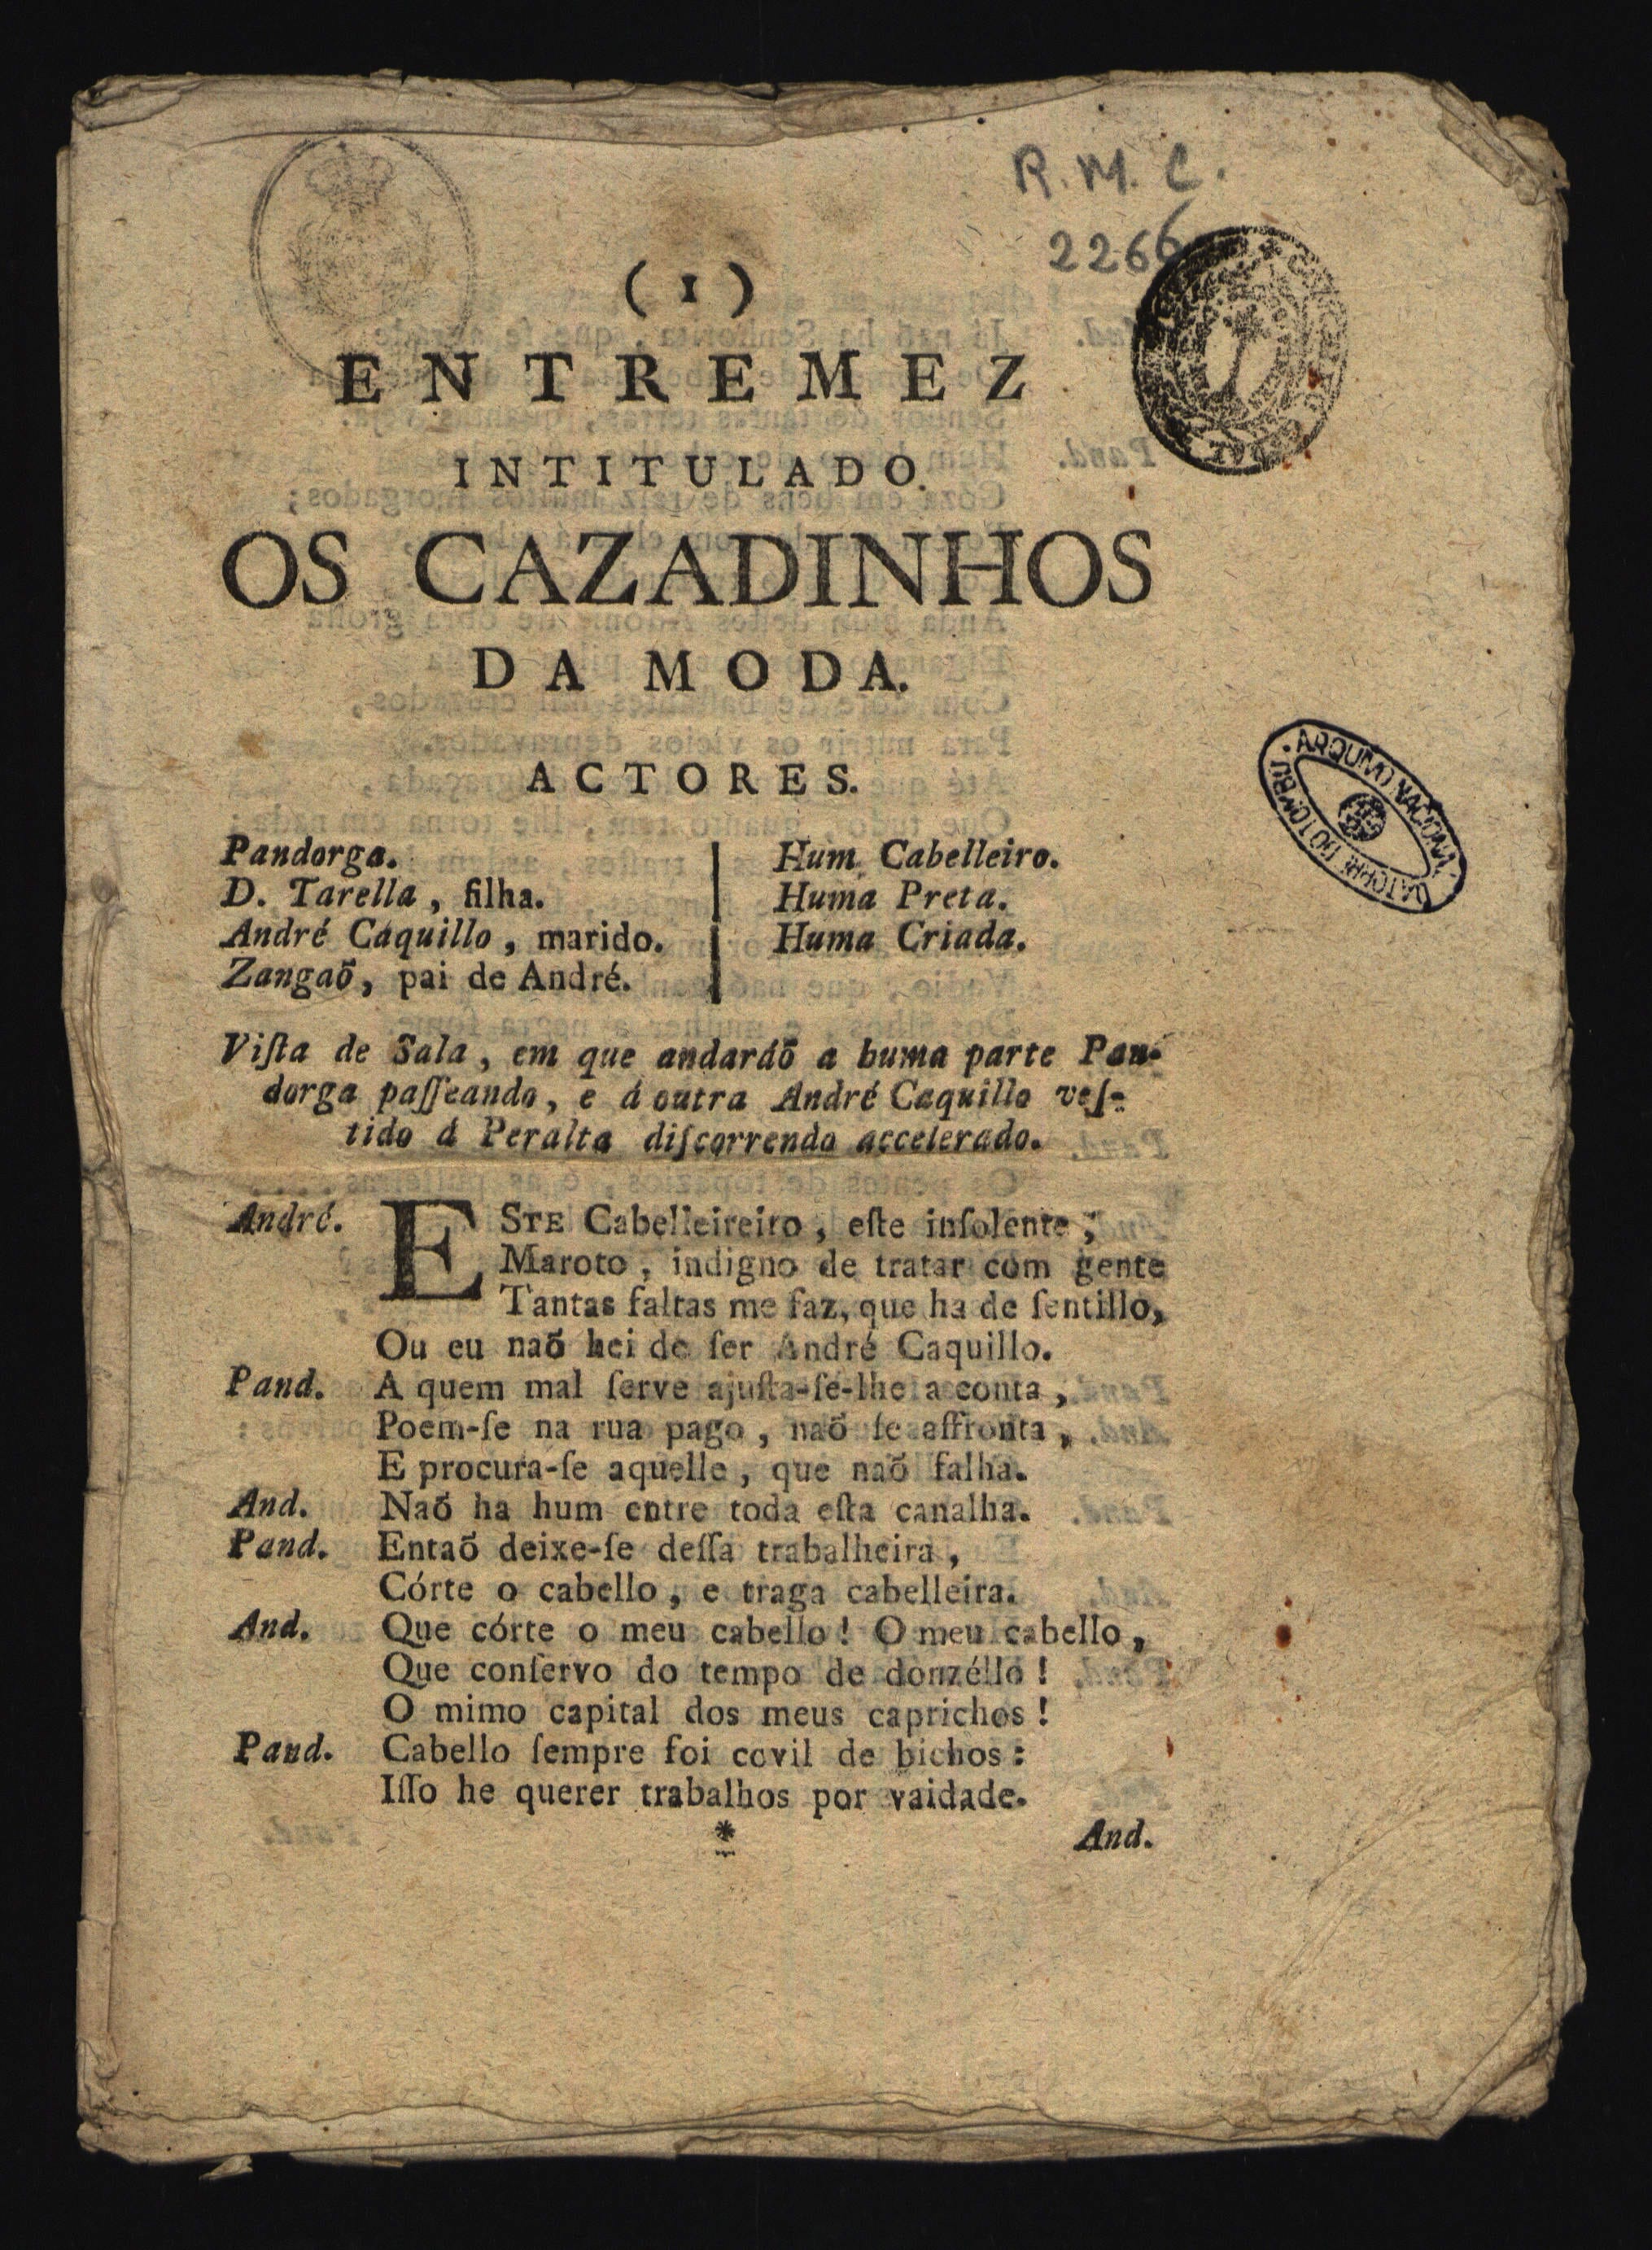 R. M. C.
2266
( 1 )
ENTREMEZ
INTITULADO.
OS CAZADINHOS
DA MODA.
ACTORES.
Pandorga.
D. Tarella, filha.
André Caquillo, marido.
Zangaõ, pai de André.
Hum Cabelleiro.
Huma Preta.
Huma Criada.
ARQUIVO NACIONAL DA TORRE DO TOMBO
Viſta de Sala, em que andaráõ a huma parte Pan-
dorga paſſeando, e á outra André Caquillo veſ-
tido á Peralta diſcorrendo accelerado.
André. ESTE Cabelleireiro, eſte inſolente,
Maroto, indigno de tratar com gente
Tantas faltas me faz, que ha de ſentillo,
Ou eu naõ hei de ſer André Caquillo.
Pand. A quem mal ſerve ajuſta-ſe-lhe a conta,
Poem-ſe na rua pago, naõ ſe affronta,
E procura-ſe aquelle, que naõ falha.
And. Naõ ha hum entre toda eſta canalha.
Pand. Entaõ deixe-ſe deſſa trabalheira,
Córte o cabello, e traga cabelleira.
And. Que córte o meu cabello! O meu cabello,
Que conſervo do tempo de donzéllo!
O mimo capital dos meus caprichos!
Pand. Cabello ſempre foi covil de bichos:
Iſſo he querer trabalhos por vaidade.
* And.